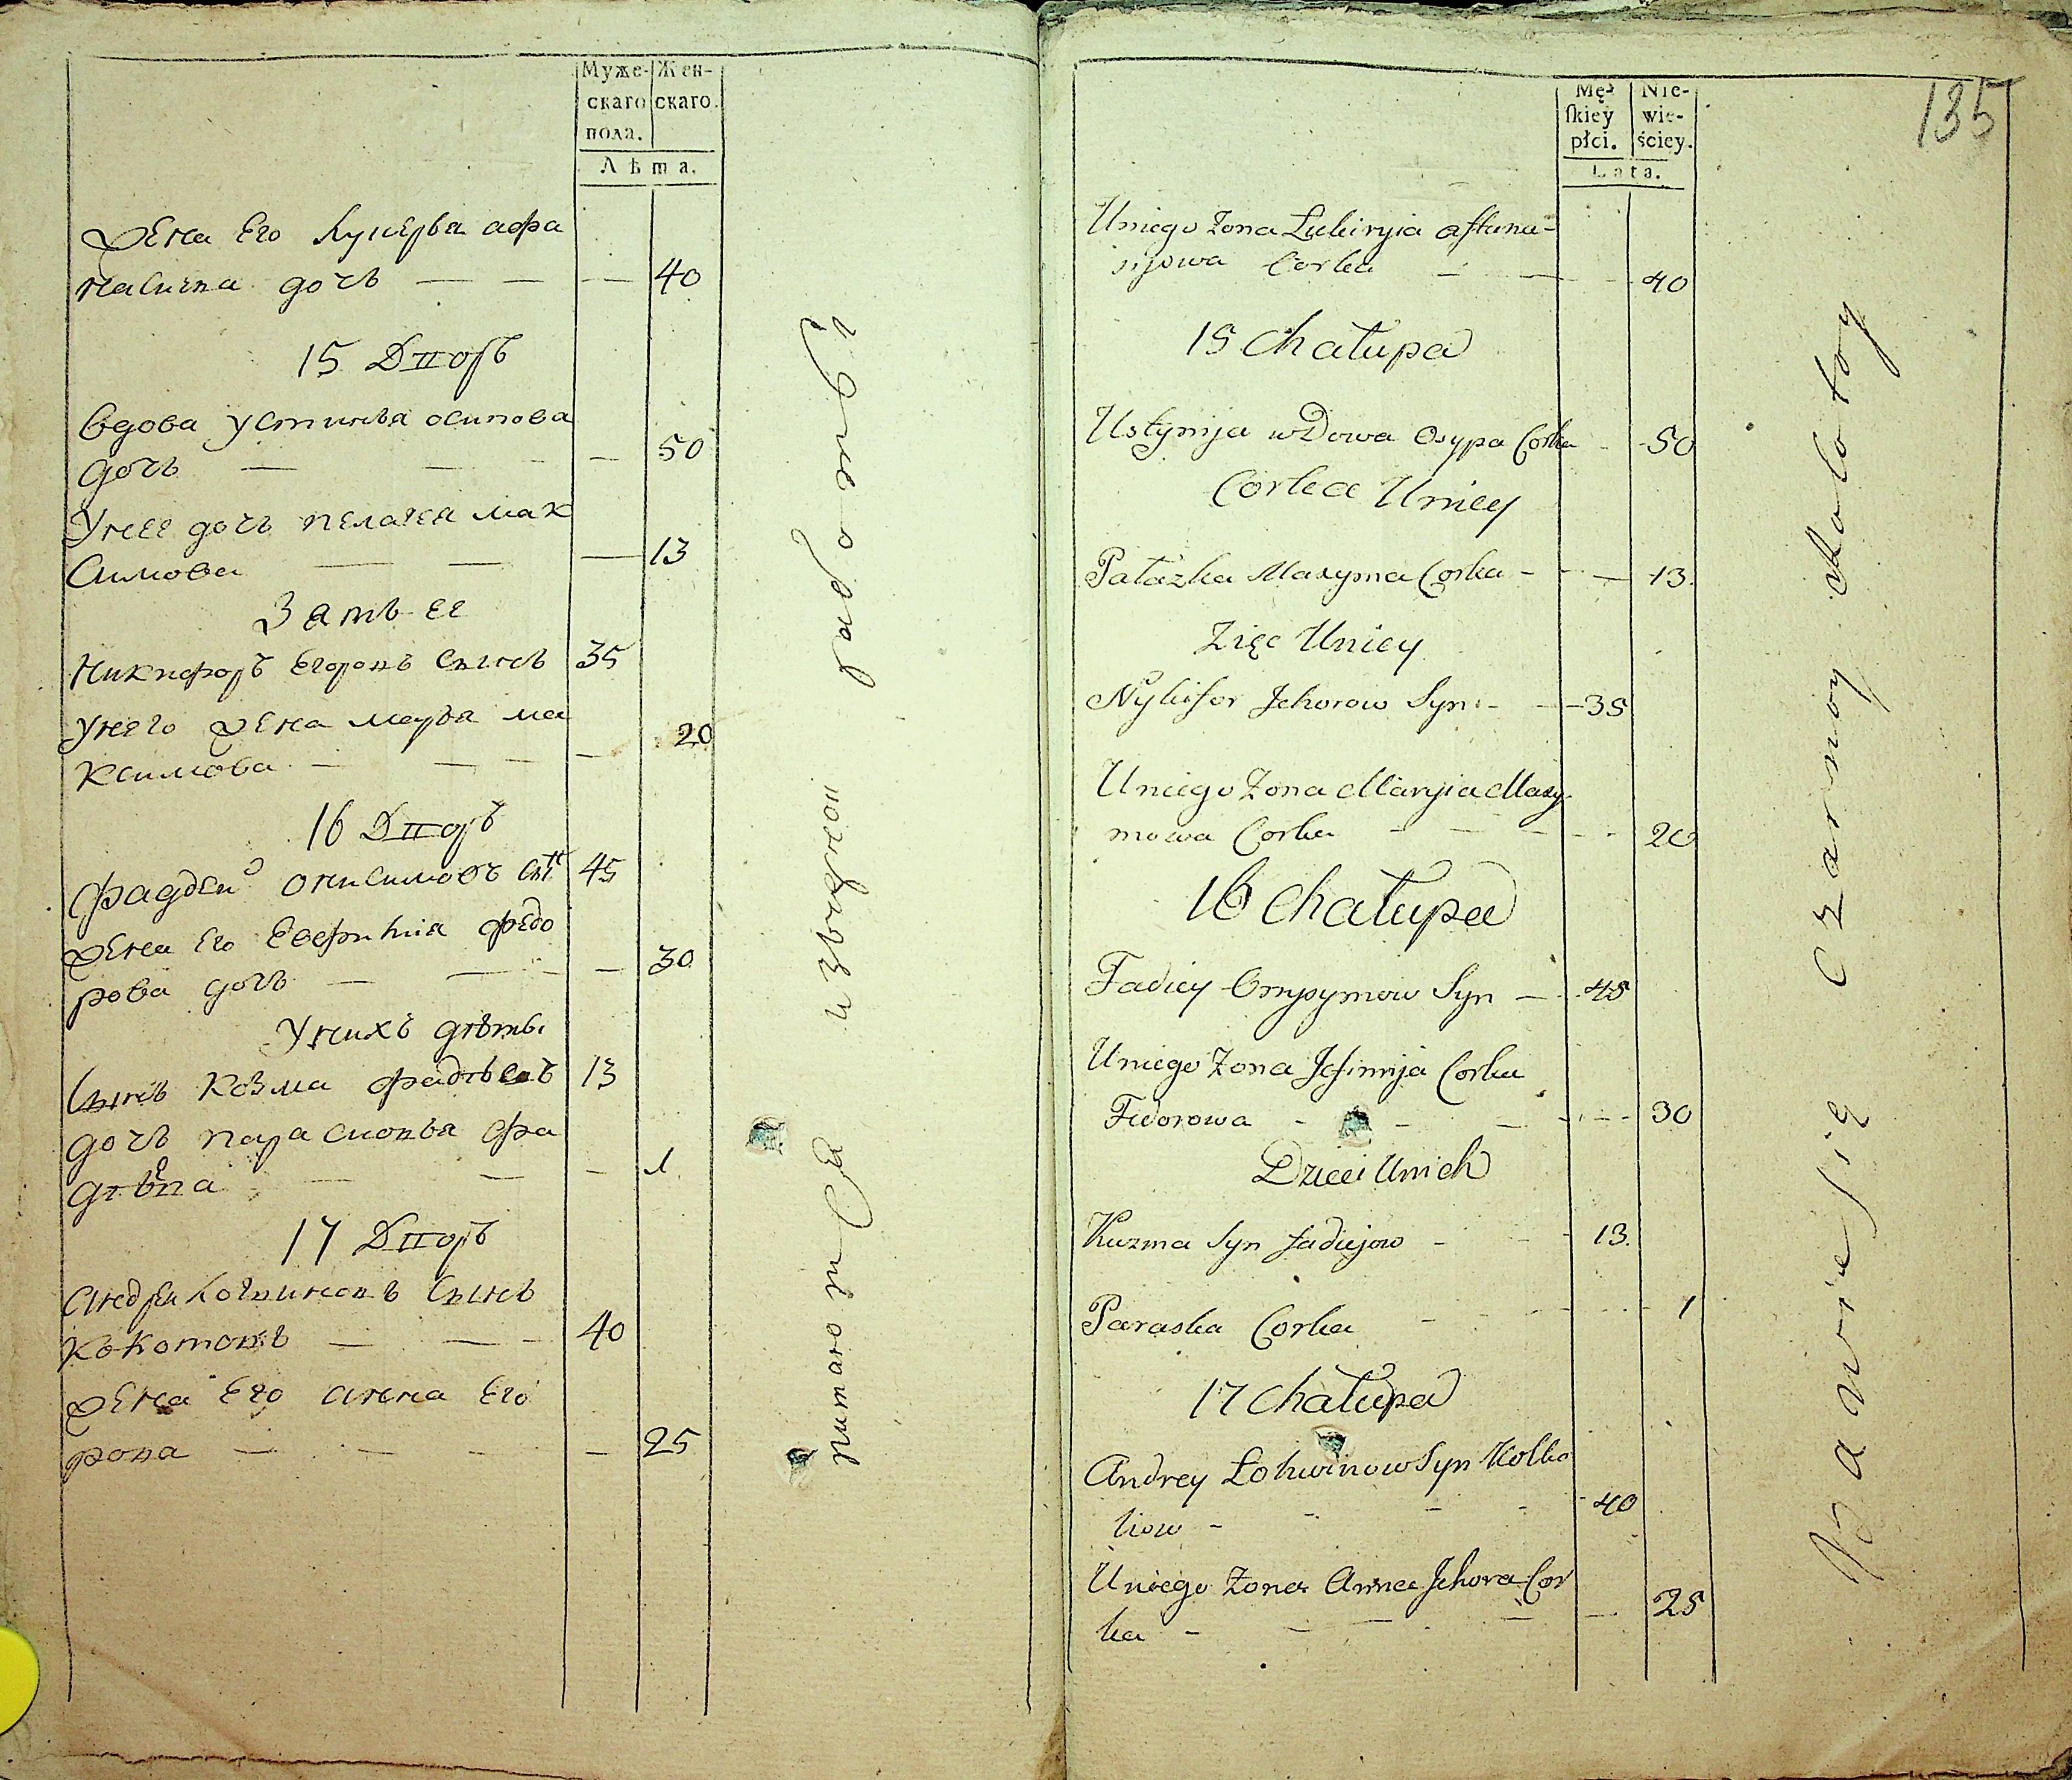 Муже- Жен-
скаго скаго.
пола.
Лѣта.
Жена Его Лукерья афа
насиева дочь — — — 40
15 Дворъ
Вдова Устинья осипова
дочь — — — 50
Унее дочь пелагея мак
симова — — — 13
Зять ее
Никифоръ Егоровъ сынъ 35
Унего жена марья ма
ксимова — — — 20
16 Дворъ
Фадѣй онисимовъ сынъ 45
Жена Его Евфимія федо
рова дочь — — — 30
Унихъ дѣти
Сынъ Козма фадѣевъ 13
дочь парасковья фа
дѣева — — — 1
17 Дворъ
Андрей Логвиновъ сынъ
— — 40
Жена Его анна Его
рова — — — — 25
питаютСя изъчерной работы
135
Mę- Nie-
skiey wie-
płci. ściey.
Lata.
Uniego Zona Lukiryia
Corka — — 40
15 Chałupa
Ustynija wdowa Osypa Corka - 50
Corka Uniey
Pałazka Maxyma Corka - — 13.
Zięć Uniey
Nykifor Jehorow Syn - 35
Uniego Zona Maryia Maxy
mowa Corka - — — 20
16 Chałupa
Fadiey Onysymow Syn — 45
Uniego Zona Jefimija Corka
Fedorowa - - — - - 30
Dzieci Unich
Kuzma Syn fadiejow - - 13.
Paraska Corka - - - 1
17 Chałupa
Andrey Łohwinow Syn Kolko
- - - - 40
Uniego Zona Anna Jehora Cor
ka - — — — 25
Bawie się czarnoy Robotoy